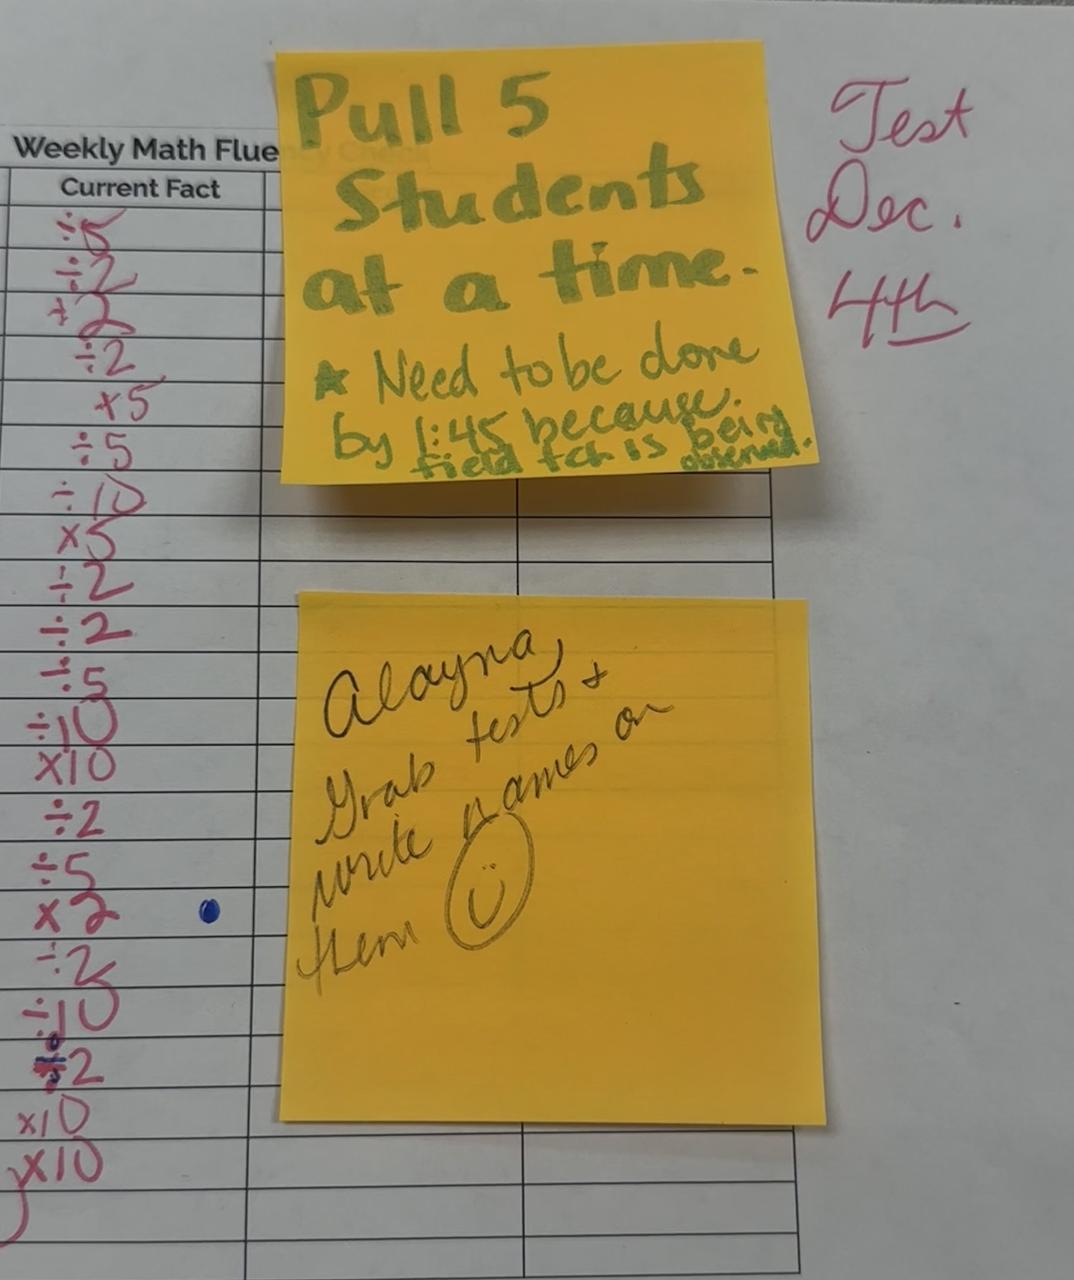 Weekly Math Flue
Current Fact
÷5
÷2
÷2
÷2
×5
÷5
÷10
×5
÷2
÷2
÷5
÷10
×10
÷2
÷5
×2
÷2
÷10
÷2
×10
×10
Pull 5
Students
at a time.
★ Need to be done
by 1:45 because.
field tch is being
observed.
Test
Dec.
4th
Alayna,
Grab tests +
write names on
them